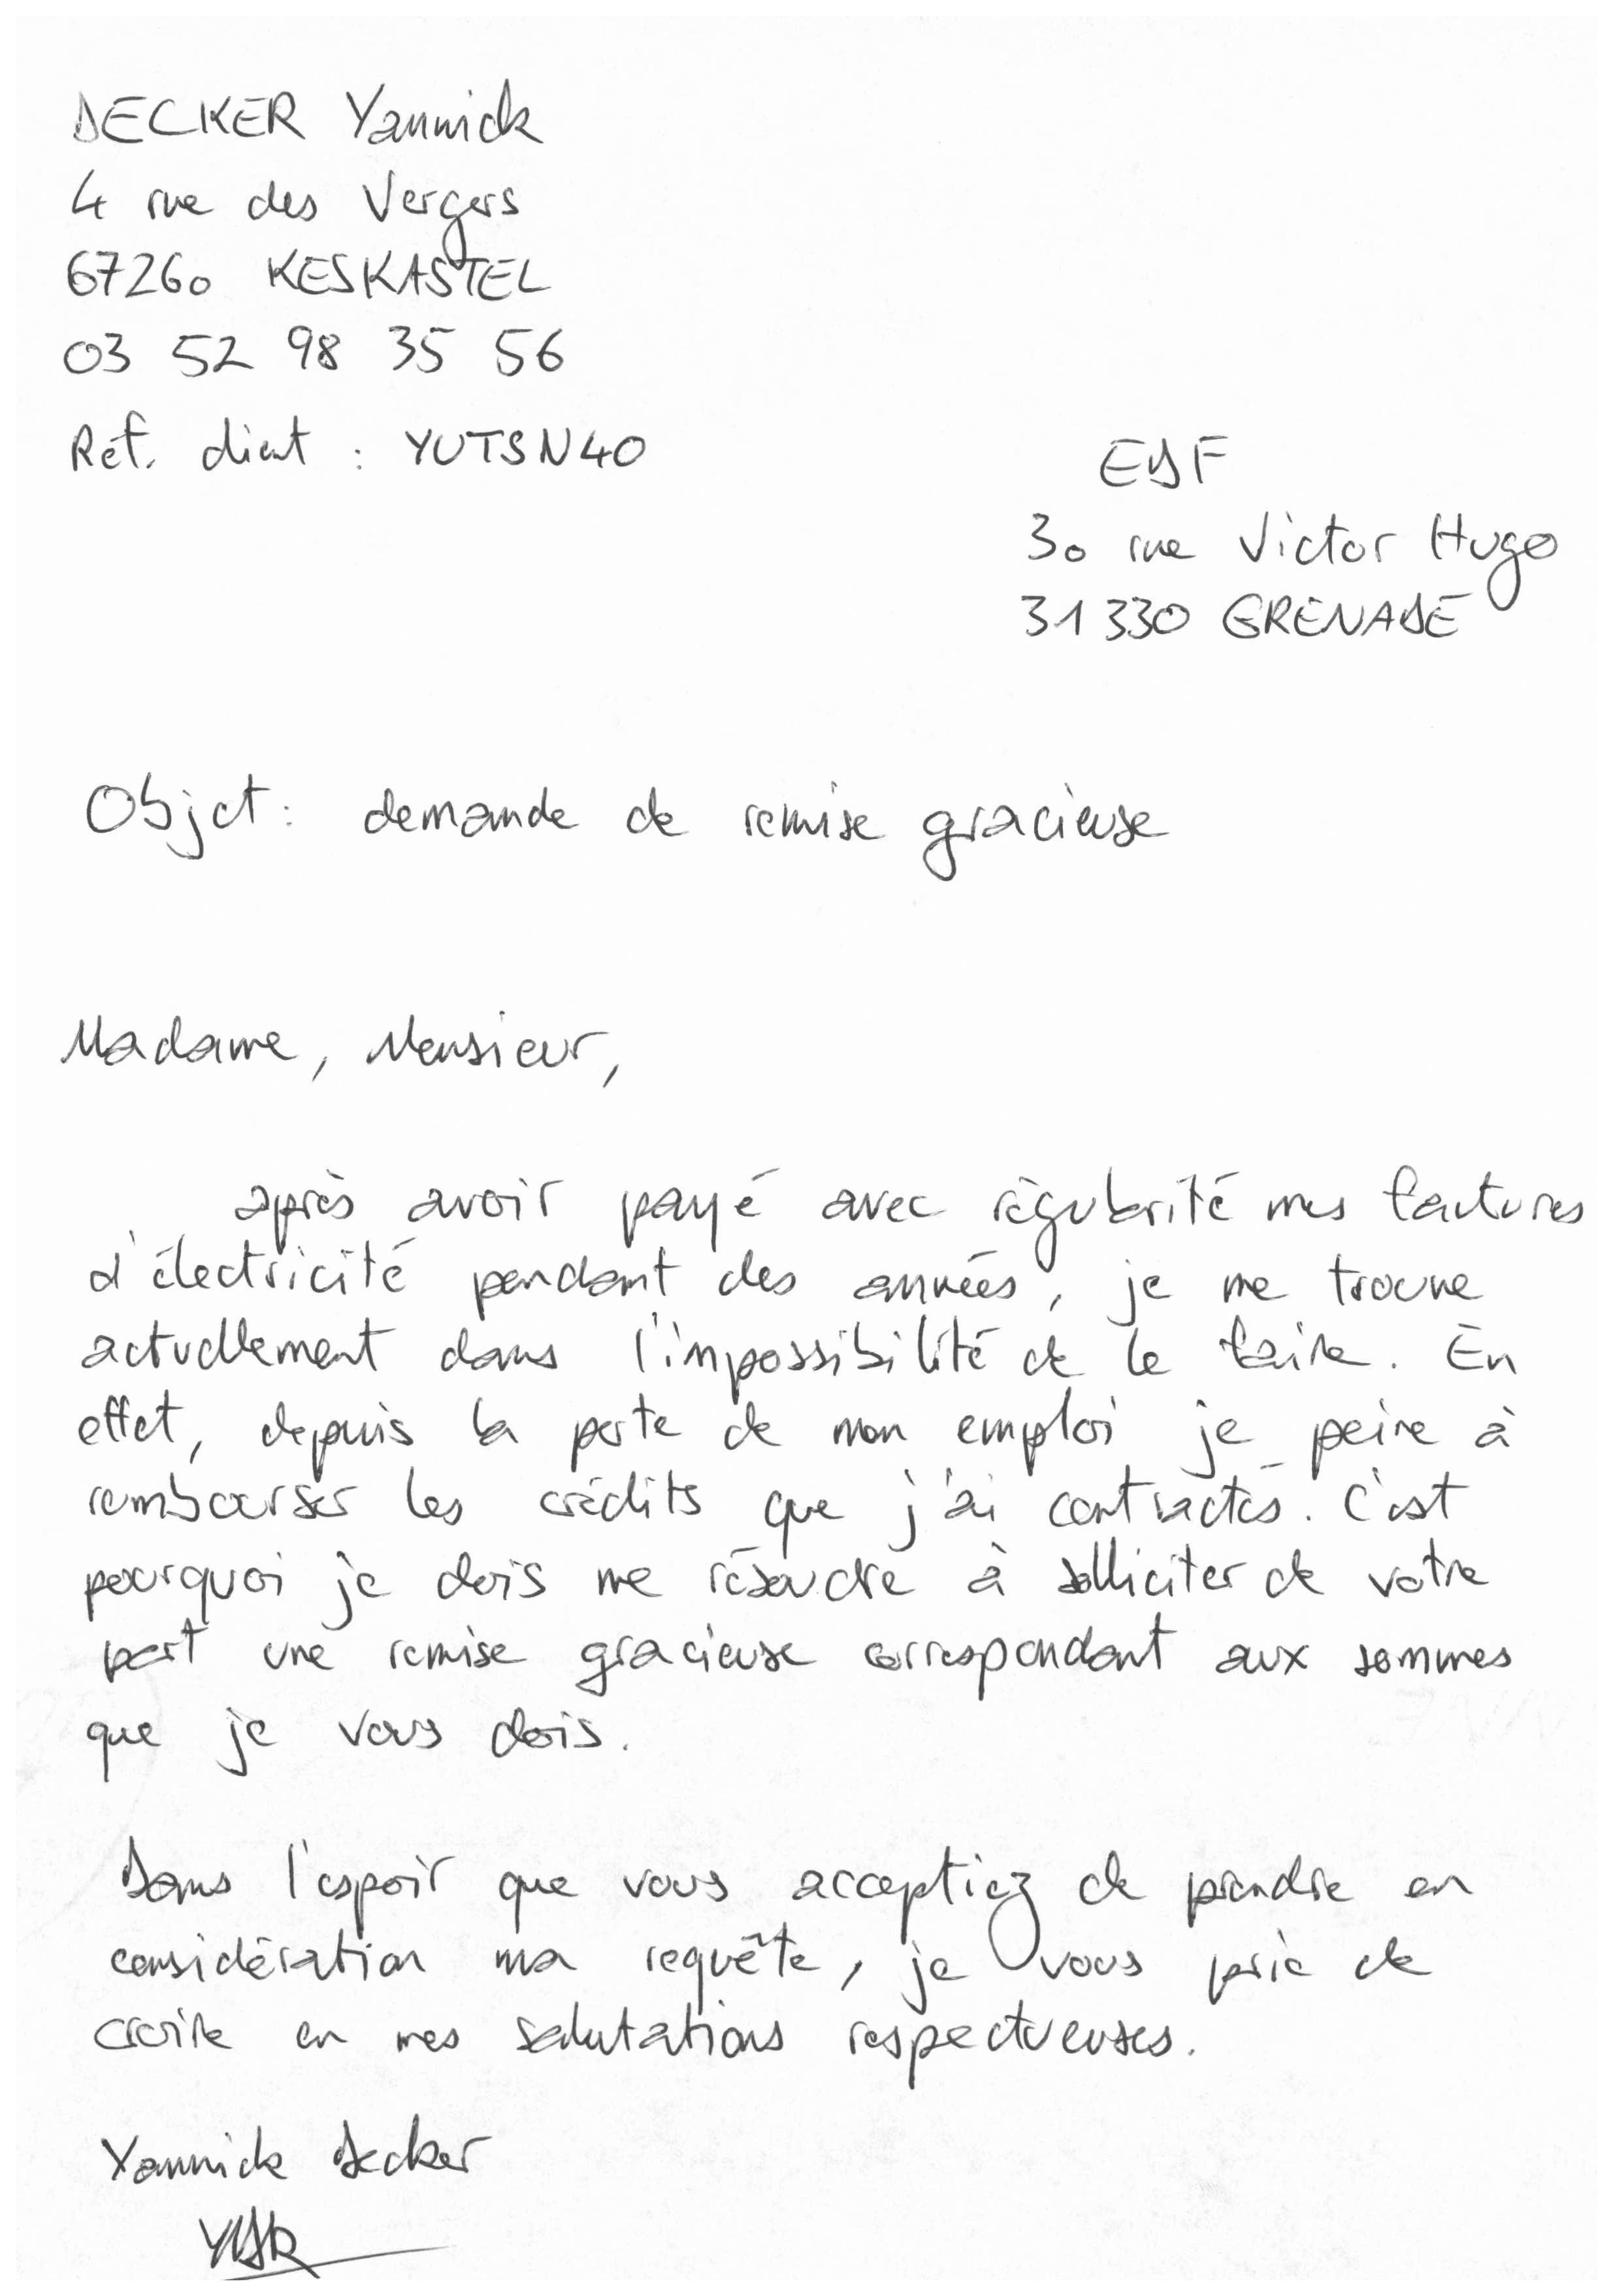 DECKER Yannick
4 rue des Vergers
67260 KESKASTEL
03 52 98 35 56
Réf. client : YUTSN40
EDF
30 rue Victor Hugo
31330 GRENADE
Objet : demande de remise gracieuse
Madame, Monsieur,
après avoir payé avec régularité mes factures
d'électricité pendant des années, je me trouve
actuellement dans l'impossibilité de le faire. En
effet, depuis la perte de mon emploi je peine à
rembourser les crédits que j'ai contractés. C'est
pourquoi je dois me résoudre à solliciter de votre
part une remise gracieuse correspondant aux sommes
que je vous dois.
Dans l'espoir que vous acceptiez de prendre en
considération ma requête, je vous prie de
croire en mes salutations respectueuses.
Yannick Decker